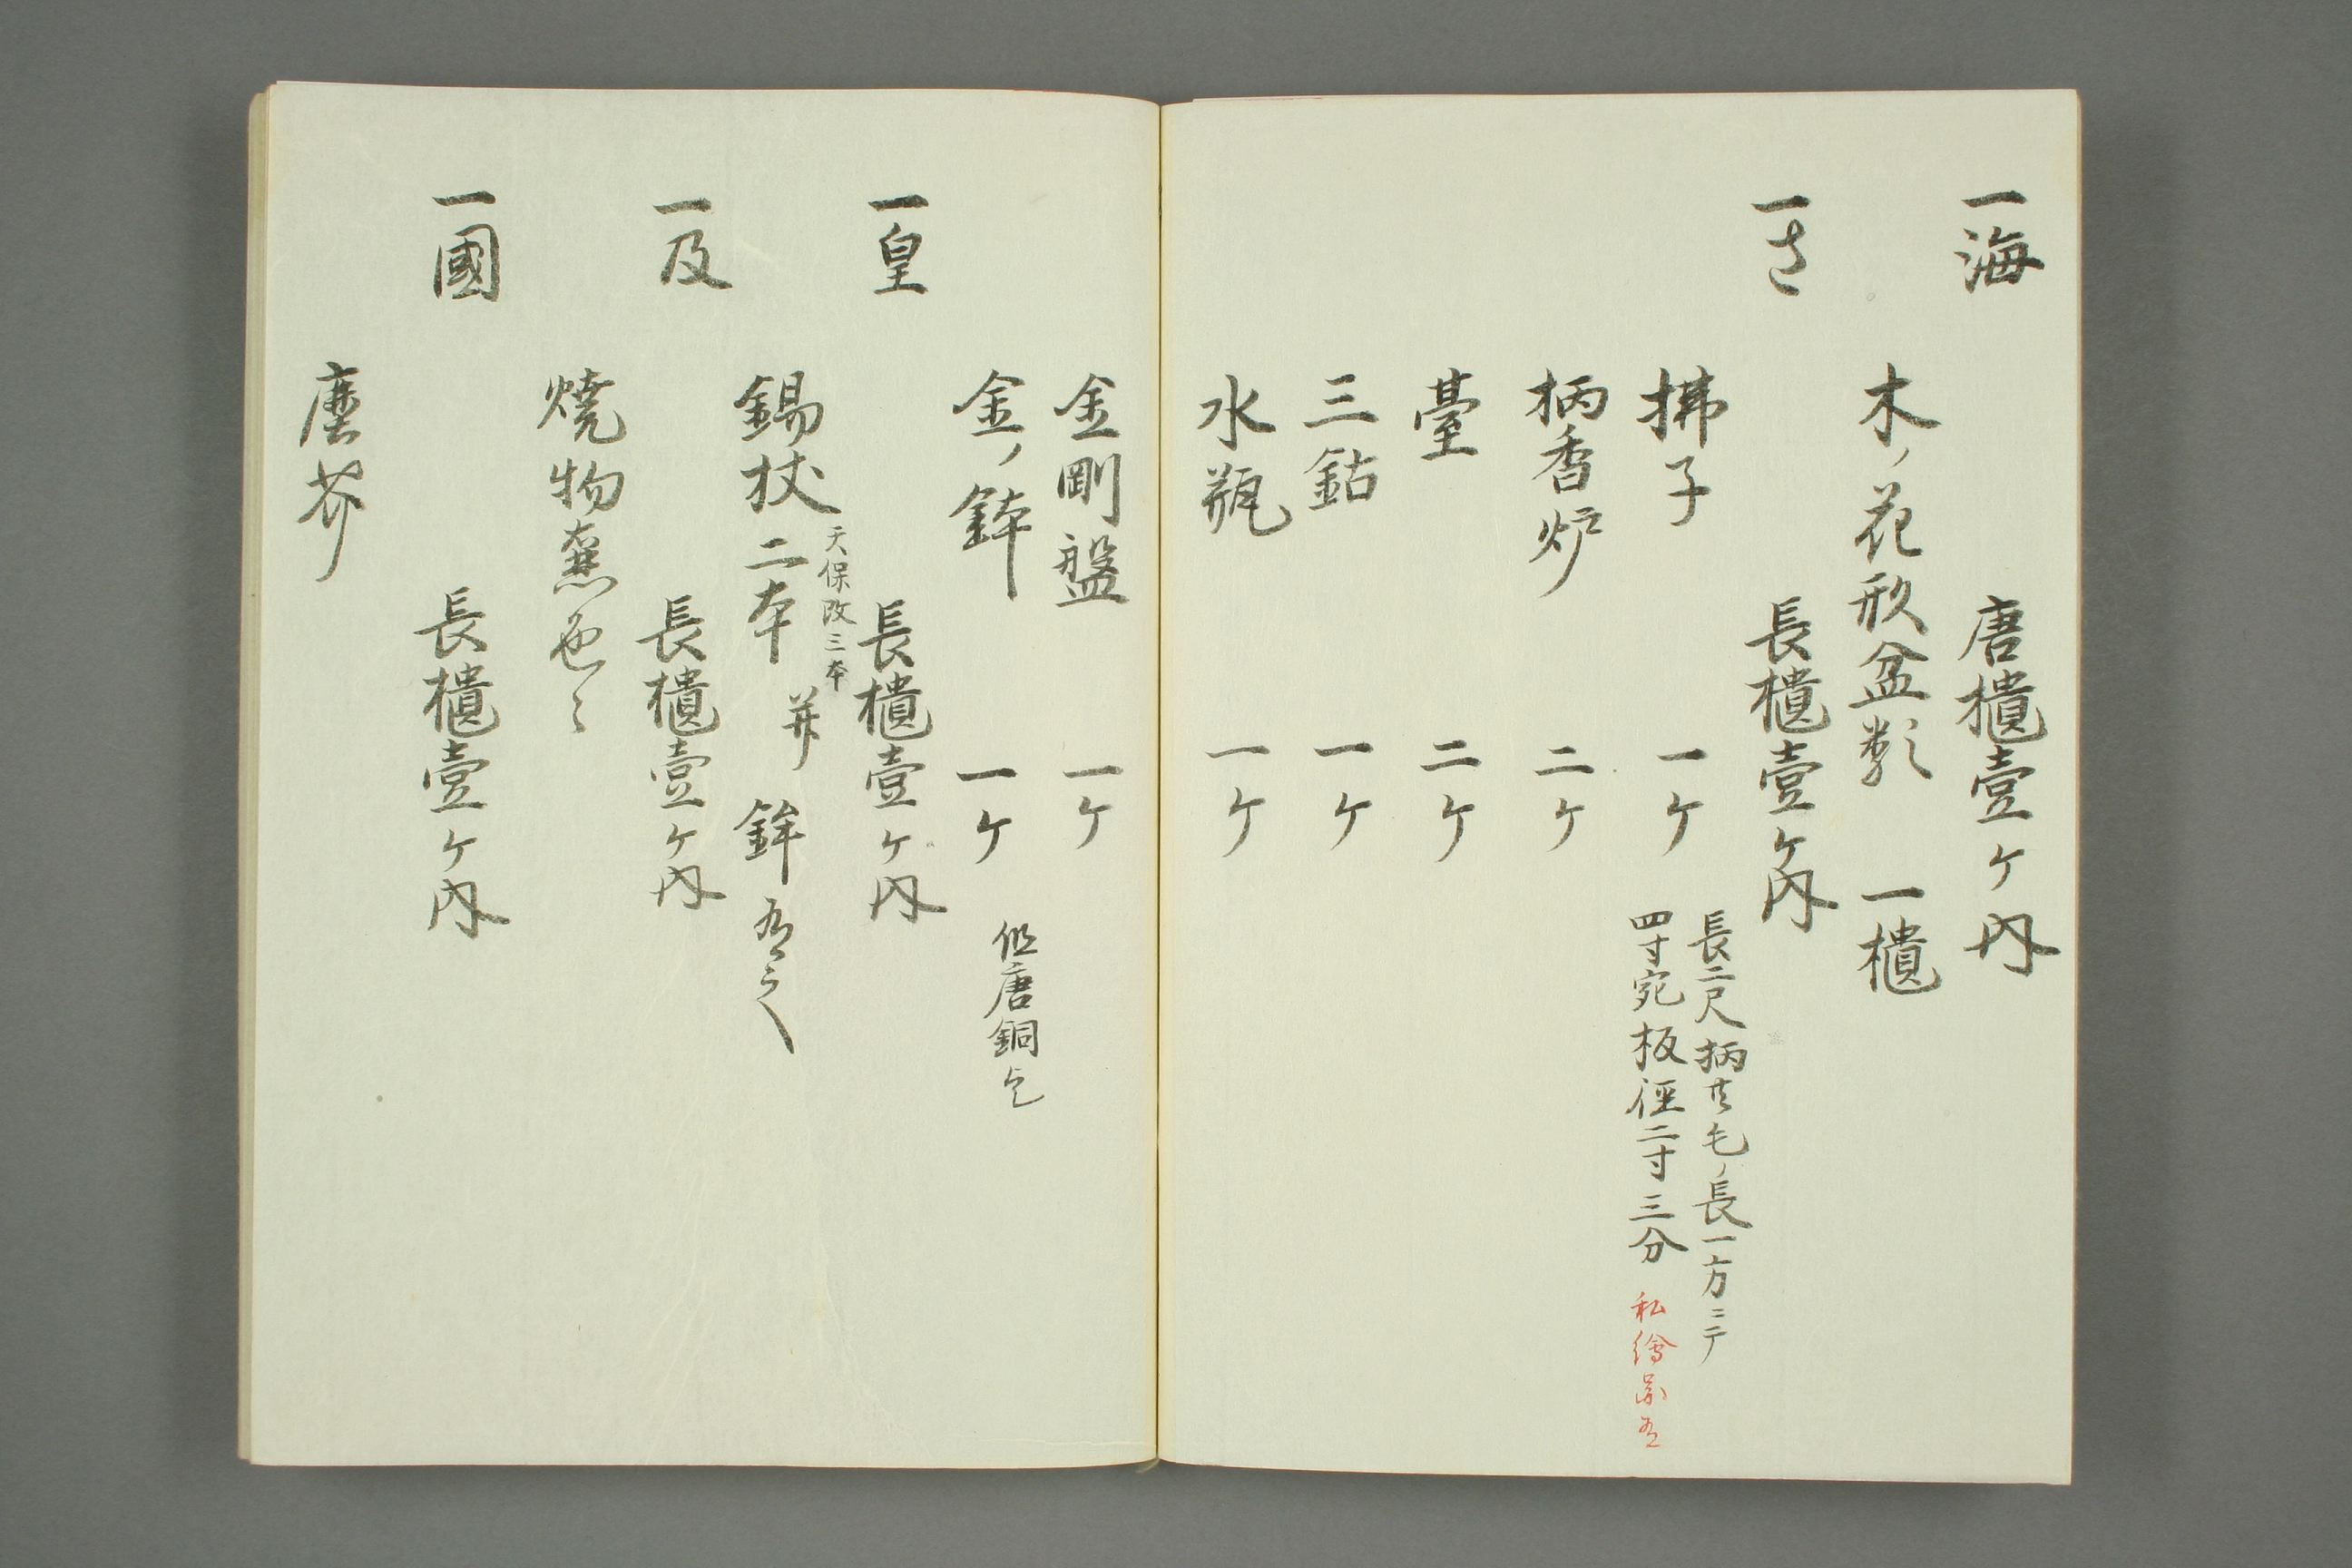 一海　唐櫃壹ヶ内
木ノ花形盆類　一櫃
一さ　長櫃壹ヶ内
拂子　一ヶ　長二尺柄共毛ノ長一方ニテ
四寸宛板径二寸三分　私繪圖有
柄香炉　二ヶ
臺　二ヶ
三鈷　一ヶ
水瓶　一ヶ
金剛盤　一ヶ
金ノ鉢　一ヶ　但唐銅也
一皇　長櫃壹ヶ内
天保改三本
錫杖二本　并　鉾有之
一及　長櫃壹ヶ内
焼物
一國　長櫃壹ヶ内
塵芥